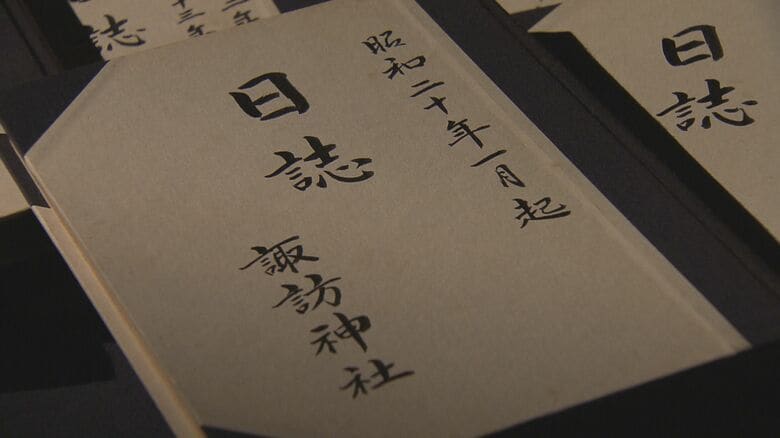 昭和二十年一月起
日誌
諏訪神社
日誌
誌
三年